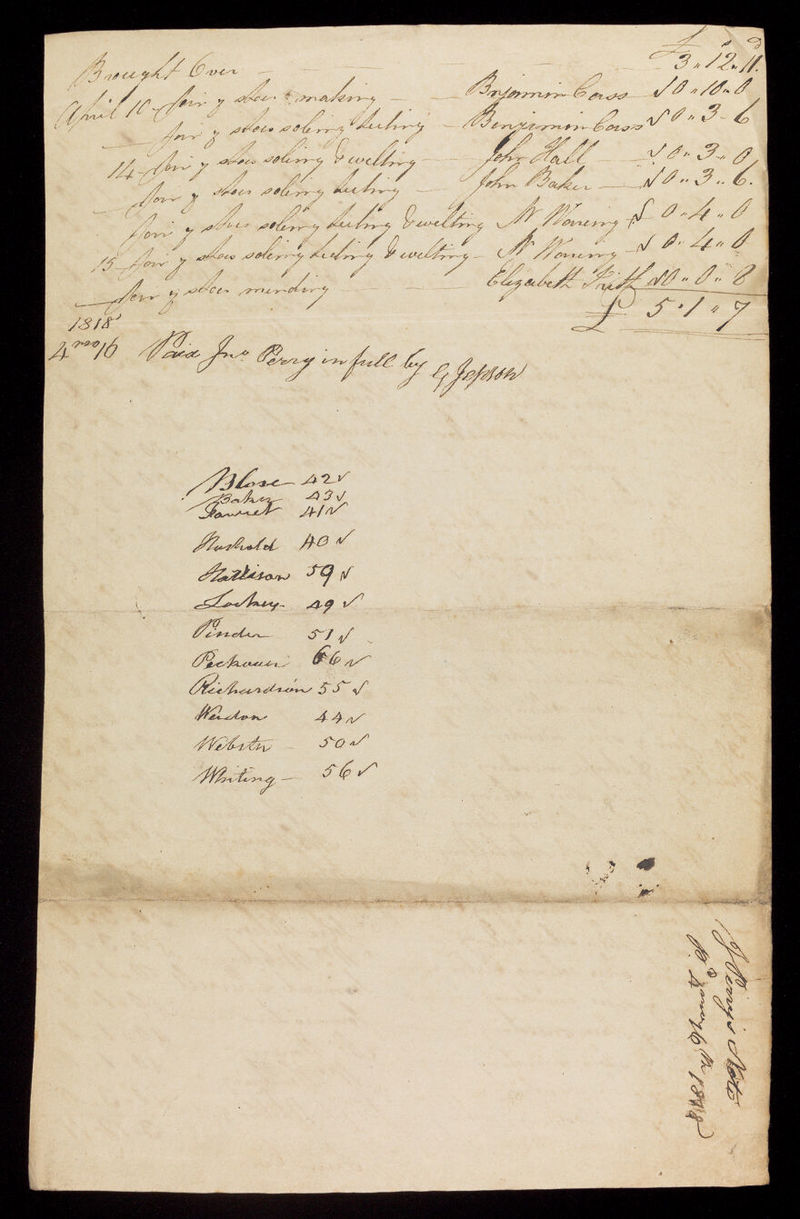 £ s d
Brought Over — 3 " 12 " 11.
April 10 — pair of shoes making — Benjamin Cass — √ 0 " 10 " 0
— pair of shoes soleing heeling — Benjimin Cass √ 0 " 3 - 6
14 — pair of shoes soleing & welting — John Hall — √ 0 " 3 " 0
— pair of shoes soleing heeling — John Baker — √ 0 " 3 " 6.
pair of shoes soleing heeling & welting Mr Waring √ 0 " 4 " 0
15 — pair of shoes soleing heeling & welting — Mr Waring — √ 0 " 4 " 0
— pair of shoes mending — Elizabeth Frith √ 0 " 0 " 8
£ 5 " 1 " 7
1818
4 mo 16 Paid Jno Perry in full by G Jepson
42 √
Baker 43 √
Fawcet 41 √
40 √
Mattison 59 √
Lockey 49 √
Pinder 51 √
Peckover 66 √
Richardson 55 √
Weldon 44 √
Webster 50 √
Whiting — 56 √
J Perry's Note
Pd 4 mo 16th 1818